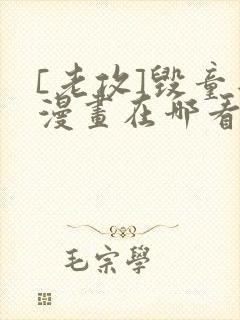 [老攻]毀童
漫畫在哪看
毛宗學